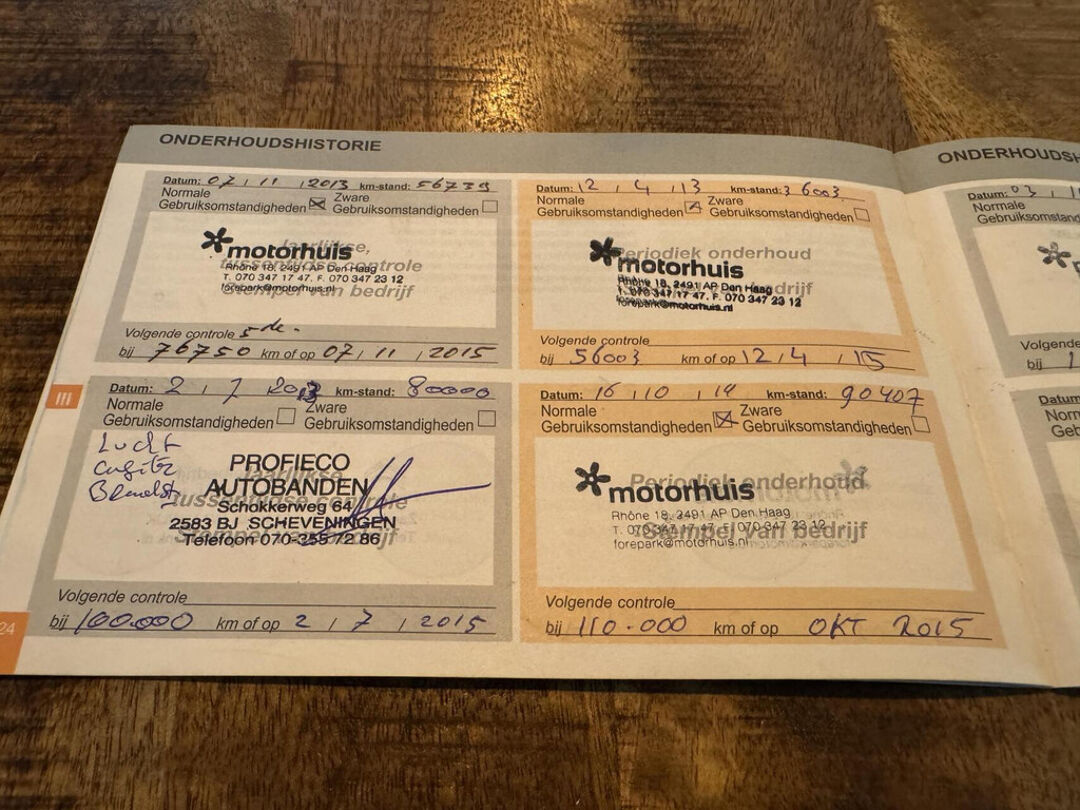 ONDERHOUDSHISTORIE
Datum: 07 / 11 / 2013 km-stand: 56739
Normale Gebruiksomstandigheden Zware Gebruiksomstandigheden
Jaarlijkse, tussentijdse controle
Stempel van bedrijf
motorhuis
Rhône 18, 2491 AP Den Haag
T. 070 347 17 47, F. 070 347 23 12
forepark@motorhuis.nl
Volgende controle 5de.
bij 76750 km of op 07 / 11 / 2015
Datum: 12 / 4 / 13 km-stand: 36003
Normale Gebruiksomstandigheden Zware Gebruiksomstandigheden
Periodiek onderhoud
Stempel van bedrijf
motorhuis
Rhône 18, 2491 AP Den Haag
T. 070 347 17 47, F. 070 347 23 12
forepark@motorhuis.nl
Volgende controle
bij 56003 km of op 12 / 4 / 15
Datum: 2 / 7 2013 km-stand: 80000
Normale Gebruiksomstandigheden Zware Gebruiksomstandigheden
Lucht
Jaarlijkse tussentijdse controle
Stempel van bedrijf
PROFIECO
AUTOBANDEN
Schokkerweg 64
2583 BJ SCHEVENINGEN
Telefoon 070-355 72 86
Volgende controle
bij 100.000 km of op 2 / 7 / 2015
Datum: 16 / 10 / 14 km-stand: 90407
Normale Gebruiksomstandigheden Zware Gebruiksomstandigheden
Periodiek onderhoud
Stempel van bedrijf
motorhuis
Rhône 18, 2491 AP Den Haag
T. 070 347 17 47, F. 070 347 23 12
forepark@motorhuis.nl
Volgende controle
bij 110.000 km of op OKT 2015
24
III
ONDERHOUDSH
Datum: 03 /
Normale
Gebruiksomstand
Volgende
bij 1
Datum
Norm
Geb